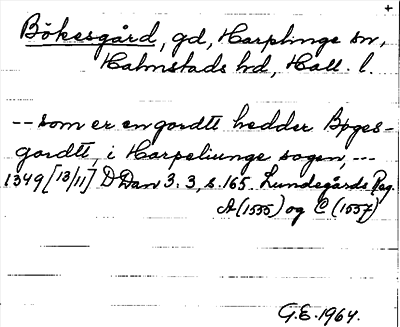 +
Bökesgård, gd, Harplinge sn,
Halmstads hd, Hall. l.
-- som er en gordtt hedder Bøges-
gordtt, i Harpeliunge sogen, ---
1349 [13/11] DDan 3. 3, s. 165. Lundegårds Reg.
A (1555) og C (1557)
G.E. 1964.